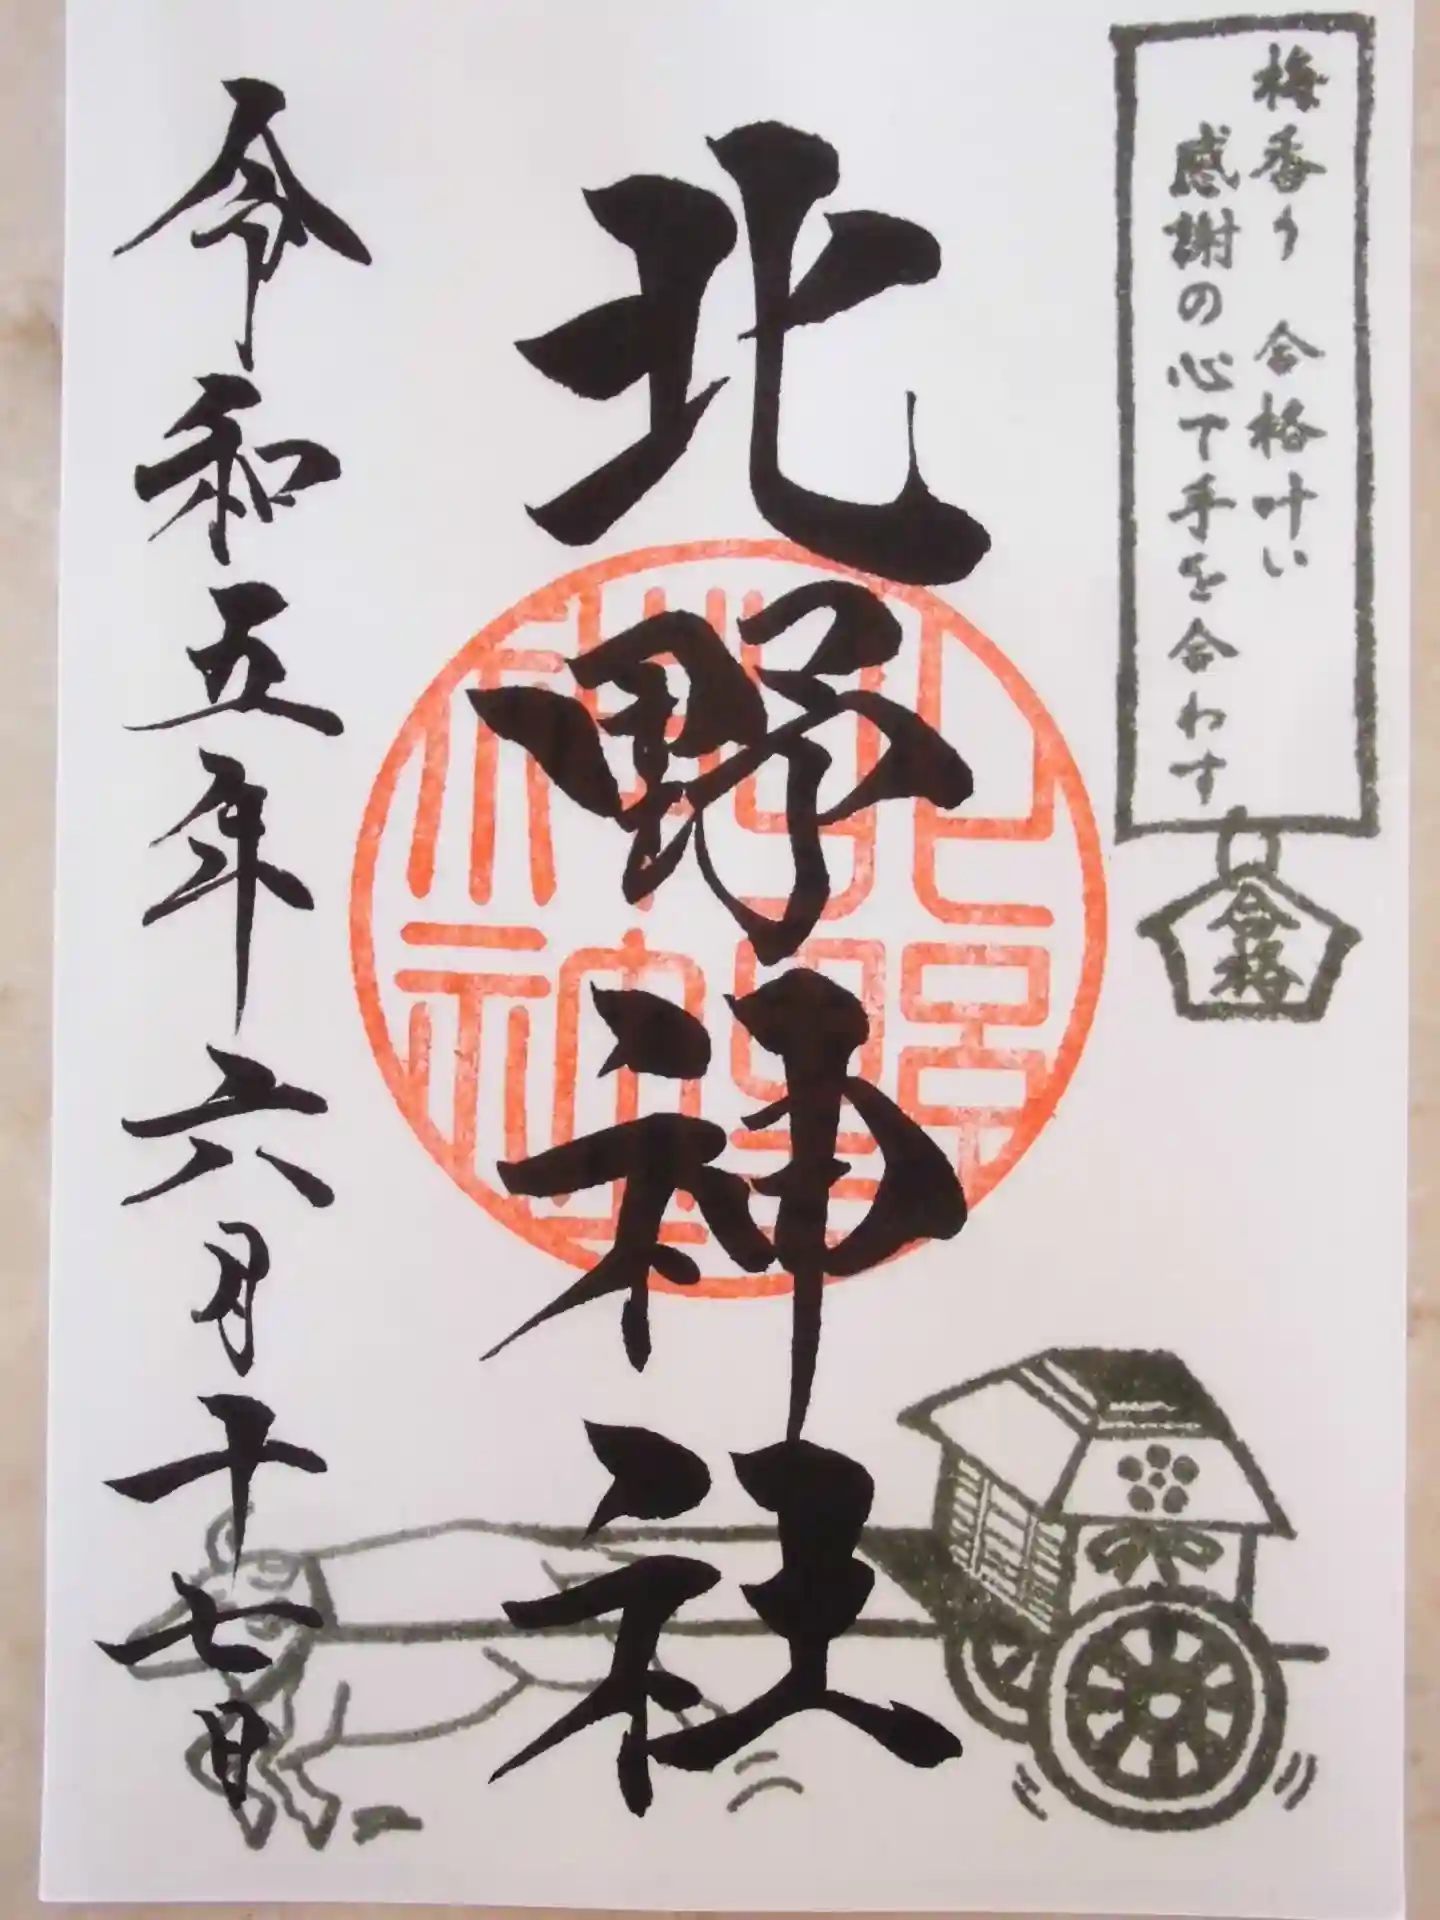 梅香り 合格叶い
感謝の心で手を合わす
合格
北野神社
令和五年六月十七日